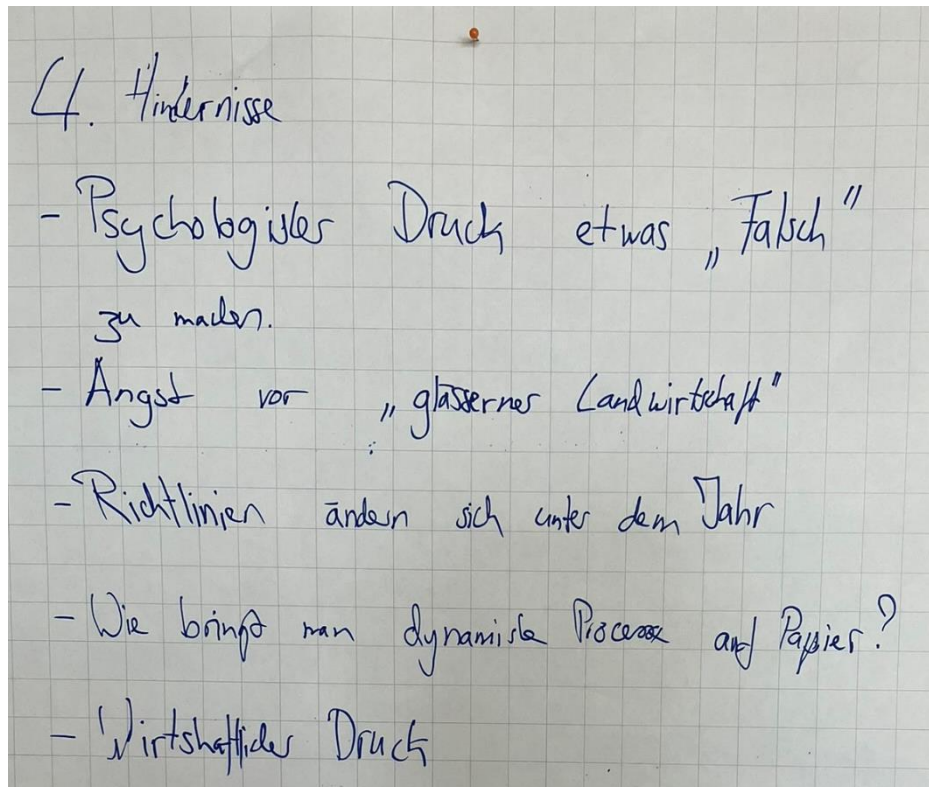 4. Hindernisse
- Psychologischer Druck etwas „Falsch"
zu machen.
- Angst vor „gläserner Landwirtschaft"
- Richtlinien ändern sich unter dem Jahr
- Wie bringt man dynamische Prozesse auf Papier?
- Wirtshaftlicher Druck